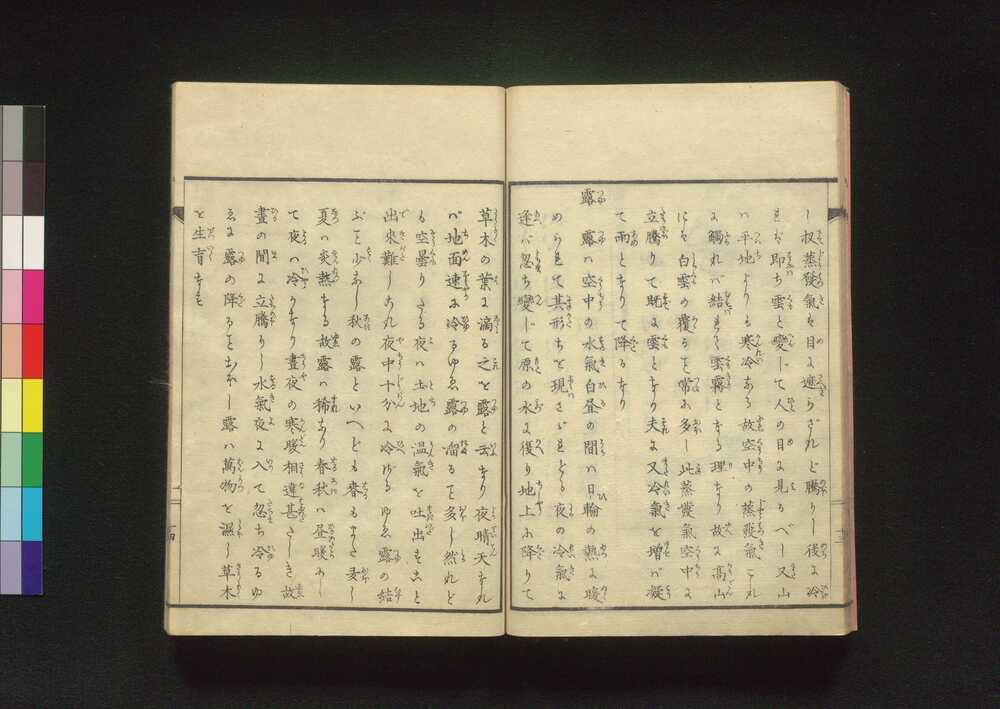 し扨蒸發氣も目に遮らざれど騰りし後は冷
れば即ち雲と變じて人の目に見るべし又山
ハ平地よりも寒冷ある故空中の蒸發氣これ
に觸れバ結れて雲霧となる理なり故に高山
にも白雲の覆るを常に多し此蒸發氣空中に
立騰りて既に雲となり夫に又冷氣を増バ凝
て雨となりて降るなり
露
露ハ空中の水氣白昼の間ハ日輪の熱に暖
められて其形ちを現さゞれども夜の冷氣に
逢バ忽ち變じて原の水に復り地上に降りて
草木の葉に滴る之を露と云なり夜晴天なれ
バ地面速に冷るゆゑ露の溜るを多し然れど
も空曇りたる夜ハ土地の温氣を吐出すこと
出來難しされバ夜中十分に冷げるゆゑ露の結
ぶを少なし秋の露といへども春もまた麦し
夏ハ炎熱なる故露ハ稀なり春秋ハ昼暖かし
て夜ハ冷りなり晝夜の寒暖相違甚だしき故
晝の間に立騰りし水氣夜に入て忽ち冷るゆ
ゑに露の降るをおほし露ハ萬物を濕し草木
を生育なすも